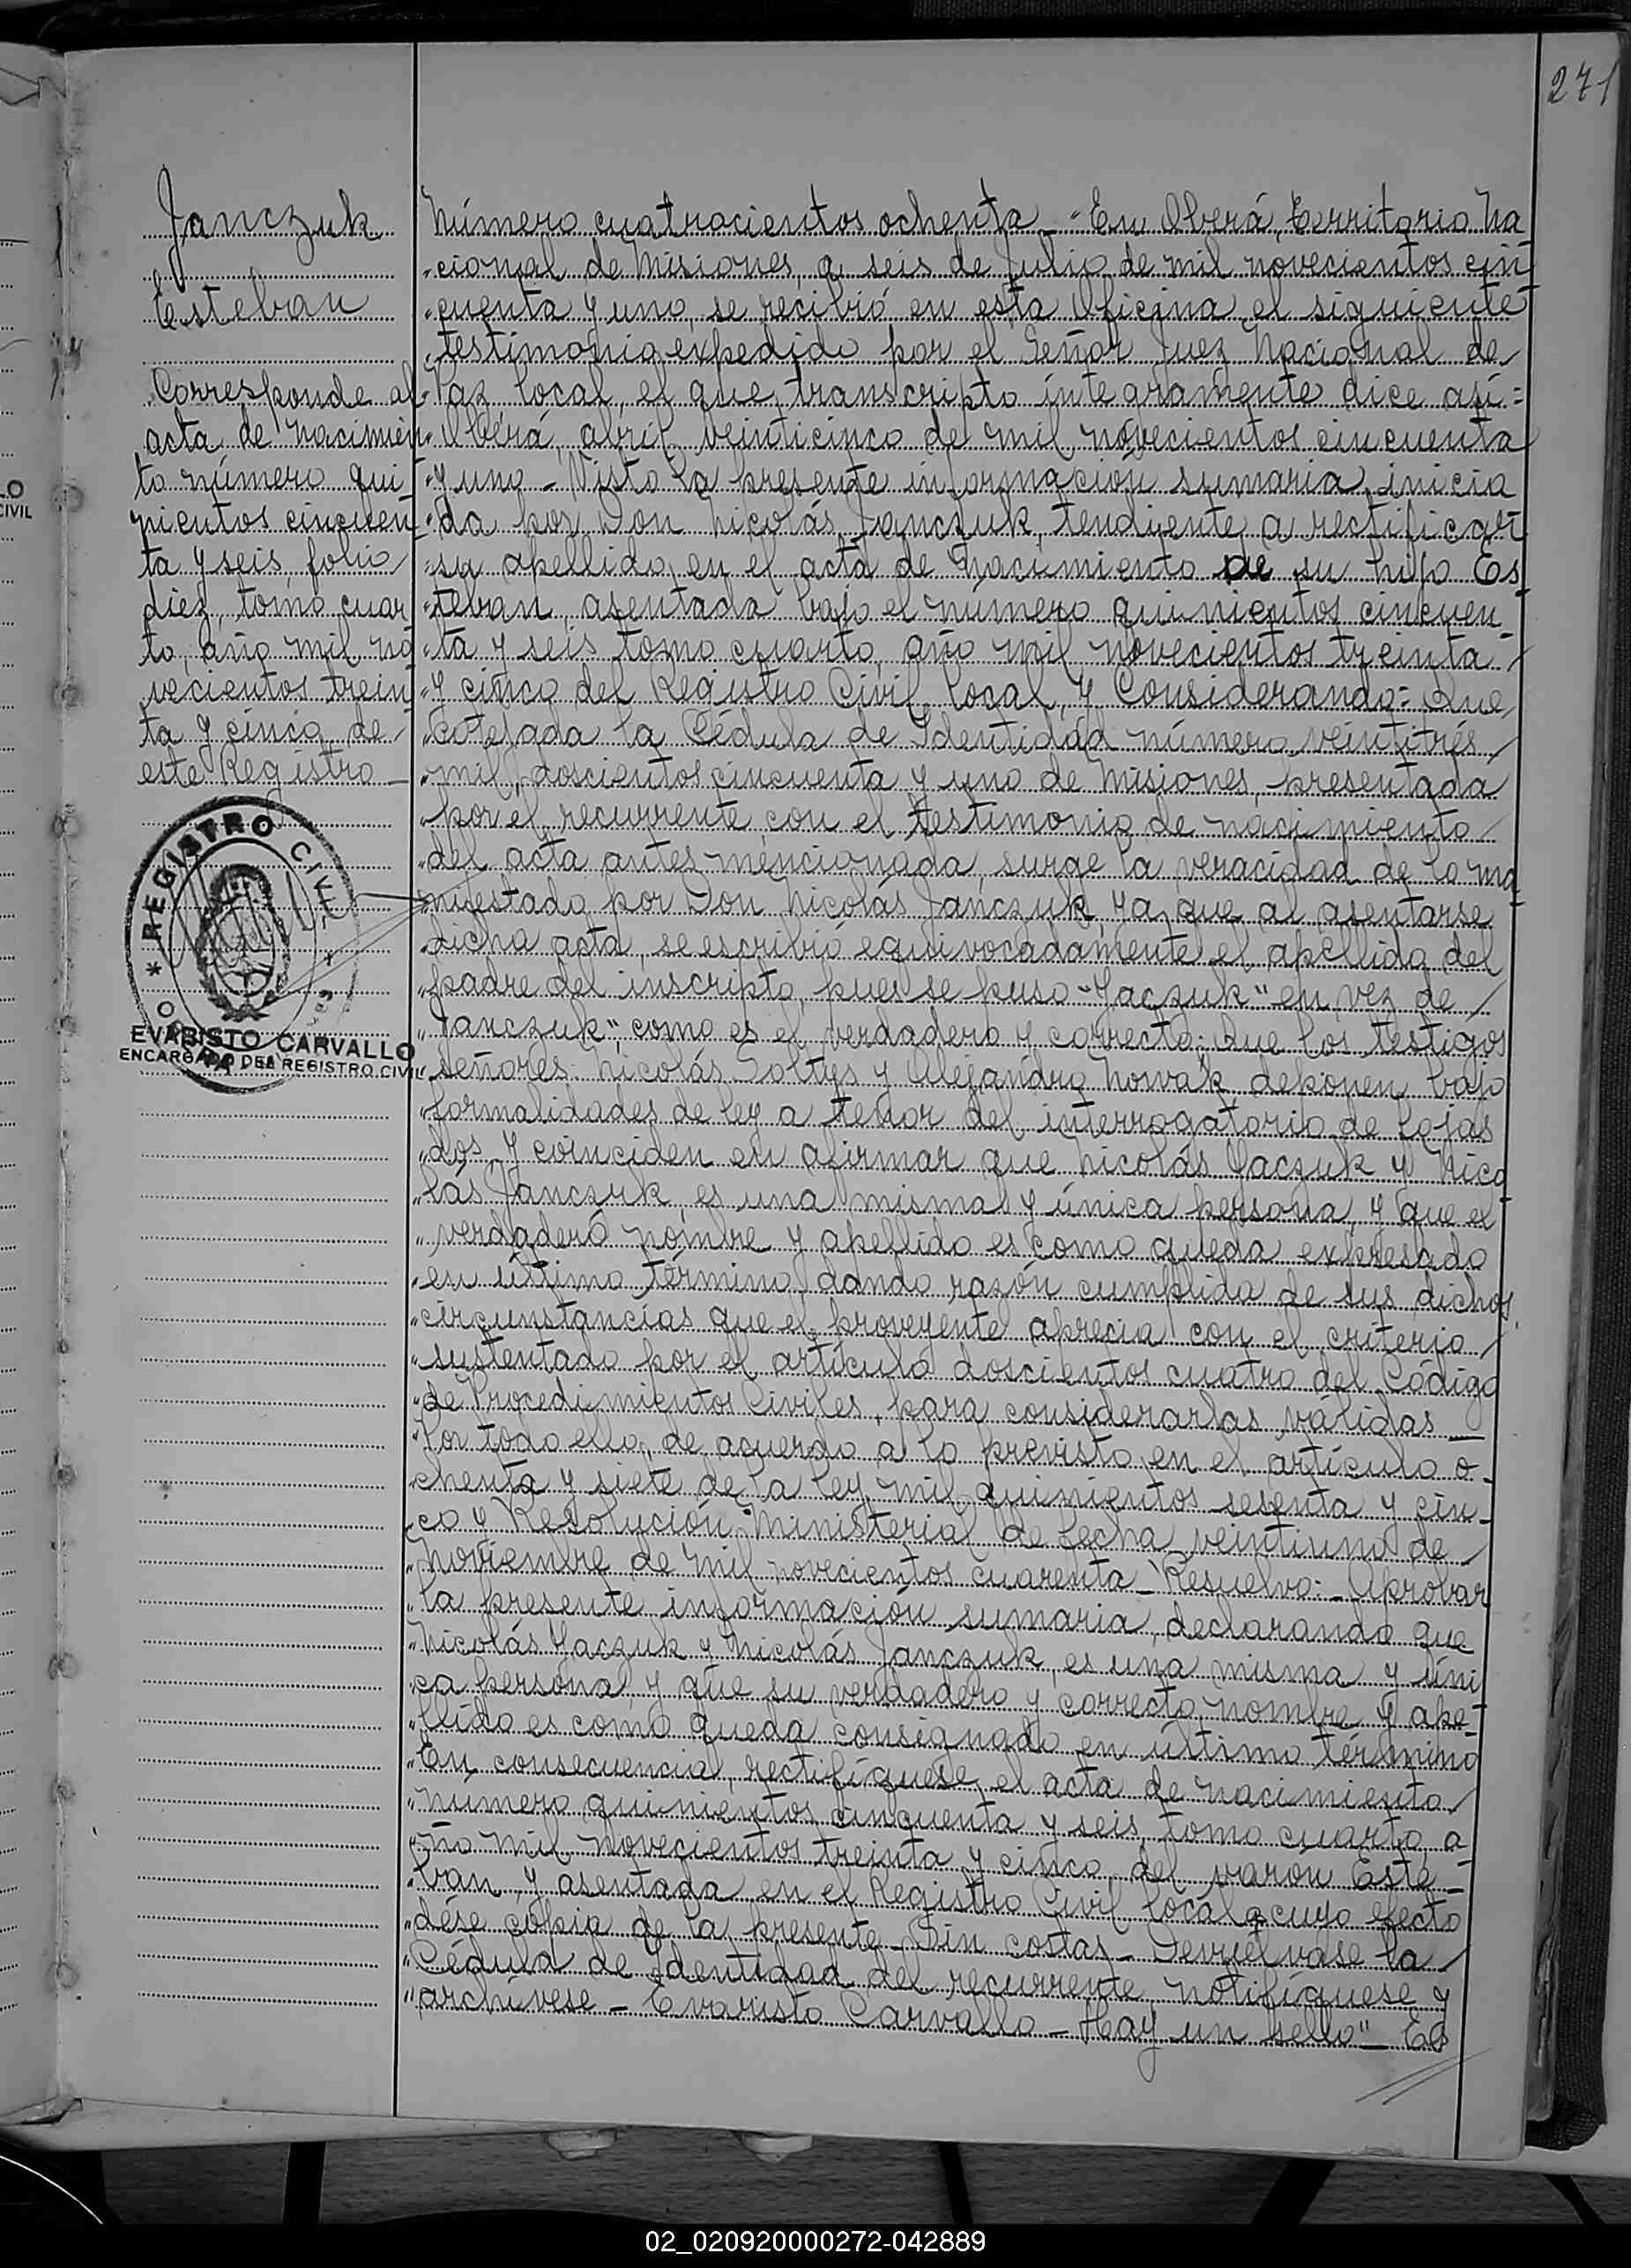 271
Janczuk
Esteban
Corresponde al
acta de nacimien
to número qui-
nientos cincuen-
ta y seis, folio
diez, tomo cuar
to, año mil no
vecientos trein
ta y cinco, de
este Registro
REGISTRO CIVIL
EVARISTO CARVALLO
ENCARGADO DEL REGISTRO CIVIL
Número cuatrocientos ochenta - "En Oberá, Territorio Na
"cional de Misiones, a seis de Julio de mil novecientos cin
"cuenta y uno, se recibió en esta Oficina el siguiente
"testimonio expedido por el Señor Juez Nacional de/
"Paz local, el que transcripto íntegramente dice así:=
"Oberá, abril veinticinco de mil novecientos cincuenta
"y uno - Visto la presente información sumaria, inicia
"da por Don Nicolás Janczuk, tendiente a rectificar
"su apellido en el acta de nacimiento de su hijo Es
"teban, asentada bajo el número quinientos cincuen-
"ta y seis tomo cuarto, año mil novecientos treinta/
"y cinco del Registro Civil local, y Considerando: Que/
"cotejada la Cédula de Identidad número veintitrés/
"mil, doscientos cincuenta y uno de Misiones, presentada
"por el recurrente, con el testimonio de nacimiento/
"del acta antes mencionada, surge la veracidad de lo ma
"nifestado por Don Nicolás Janczuk, ya que al asentarse
"dicha acta, se escribió equivocadamente el apellido del
"padre del inscripto, pues se puso "Jaczuk" en vez de/
"Janczuk", como es el verdadero y correcto; Que los testigos
"señores: Nicolás Soltys y Alejandro Nowak, deponen bajo
"formalidades de ley a tenor del interrogatorio de fojas
"dos, y coinciden en afirmar que Nicolás Jaczuk y Nico
"lás Janczuk, es una misma y única persona, y que el
"verdadero nombre y apellido es como queda expresado
"en último término, dando razón cumplida de sus dichos
"circunstancias que el proveyente aprecia con el criterio/
"sustentado por el artículo doscientos cuatro del Código
"de Procedimientos Civiles, para considerarlas válidas -
"Por todo ello, de acuerdo a lo previsto en el artículo o-
"chenta y siete de la ley mil quinientos sesenta y cin-
"co y Resolución Ministerial de fecha veintiuno de/
"Noviembre de mil novecientos cuarenta - Resuelvo: - Aprobar
"la presente información sumaria, declarando que
"Nicolás Jaczuk y Nicolás Janczuk, es una misma y úni
"ca persona y que su verdadero y correcto nombre y ape-
"llido es como queda consignado en último término
"En consecuencia, rectifíquese el acta de nacimiento/
"número quinientos cincuenta y seis, tomo cuarto, a
"ño mil novecientos treinta y cinco, del varón Este-
"ban, y asentada en el Registro Civil local a cuyo efecto
"dése copia de la presente - Sin costas - Devuélvase la/
"Cédula de Identidad del recurrente, notifíquese y
"archívese - Evaristo Carvallo - Hay un sello" - Es
02_020920000272-042889